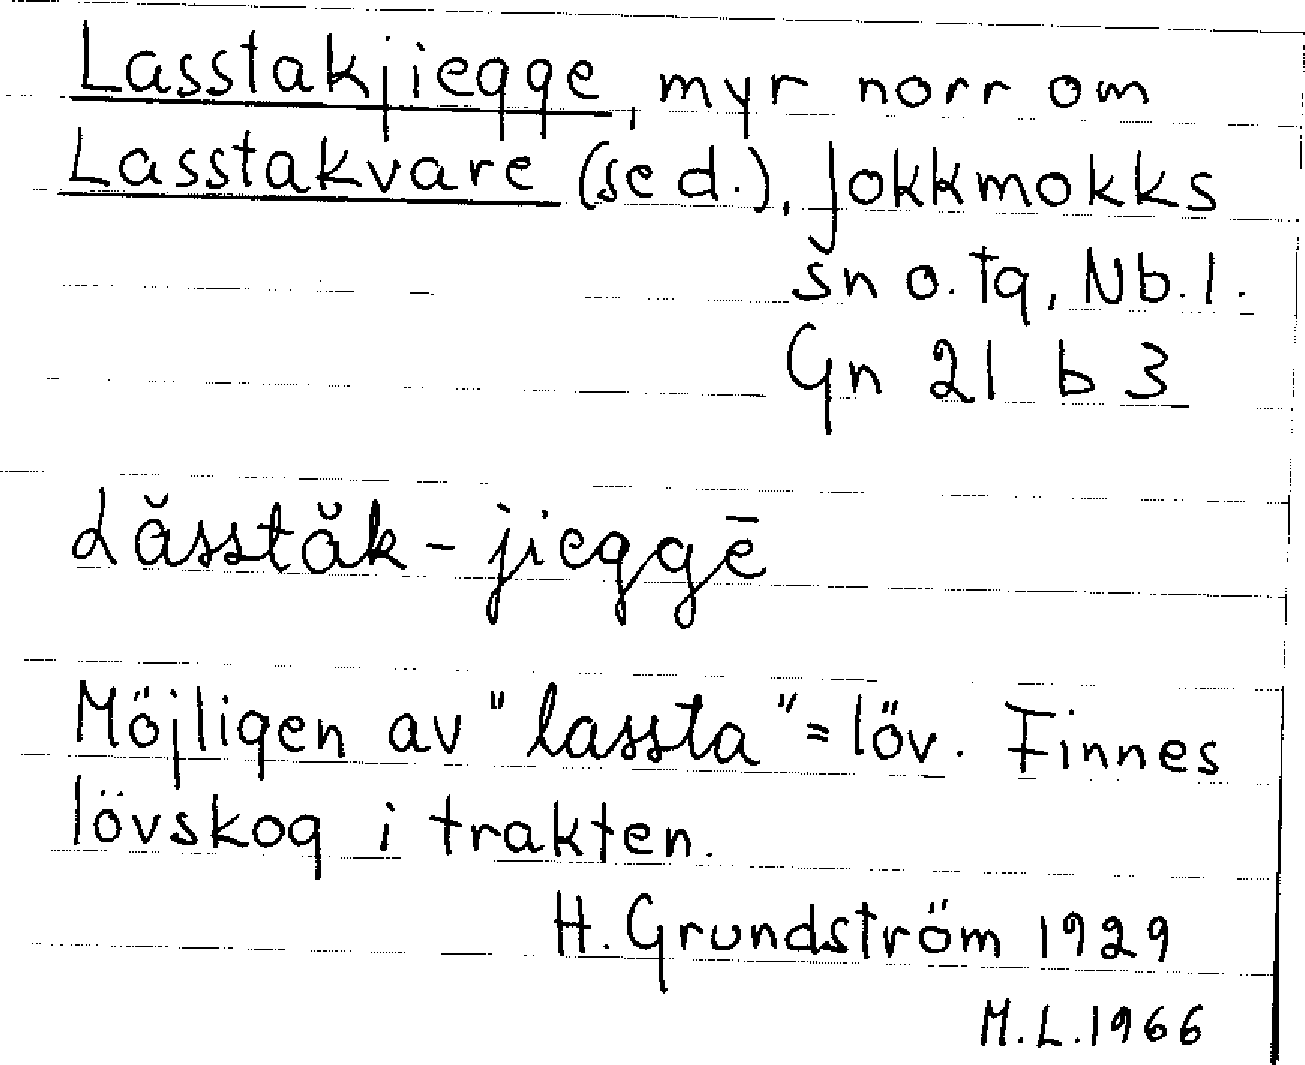 Lasstakjiegge, myr norr om
Lasstakvare (se d.), Jokkmokks
sn o. tg, Nb. l.
Gn 21 b 3
Lăsstăk-jieggē
Möjligen av "lassta" = löv. Finnes
lövskog i trakten.
H. Grundström 1929
M.L. 1966